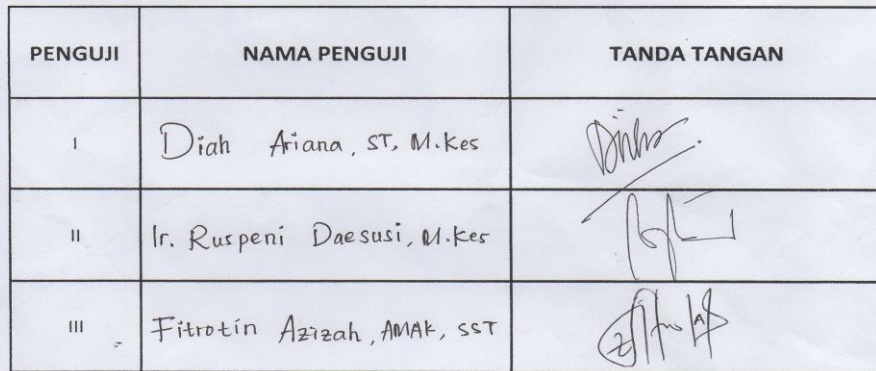 PENGUJI NAMA PENGUJI TANDA TANGAN
I Diah Ariana, ST, M.Kes
II Ir. Ruspeni Daesusi, M.Kes
III Fitrotin Azizah, AMAK, SST